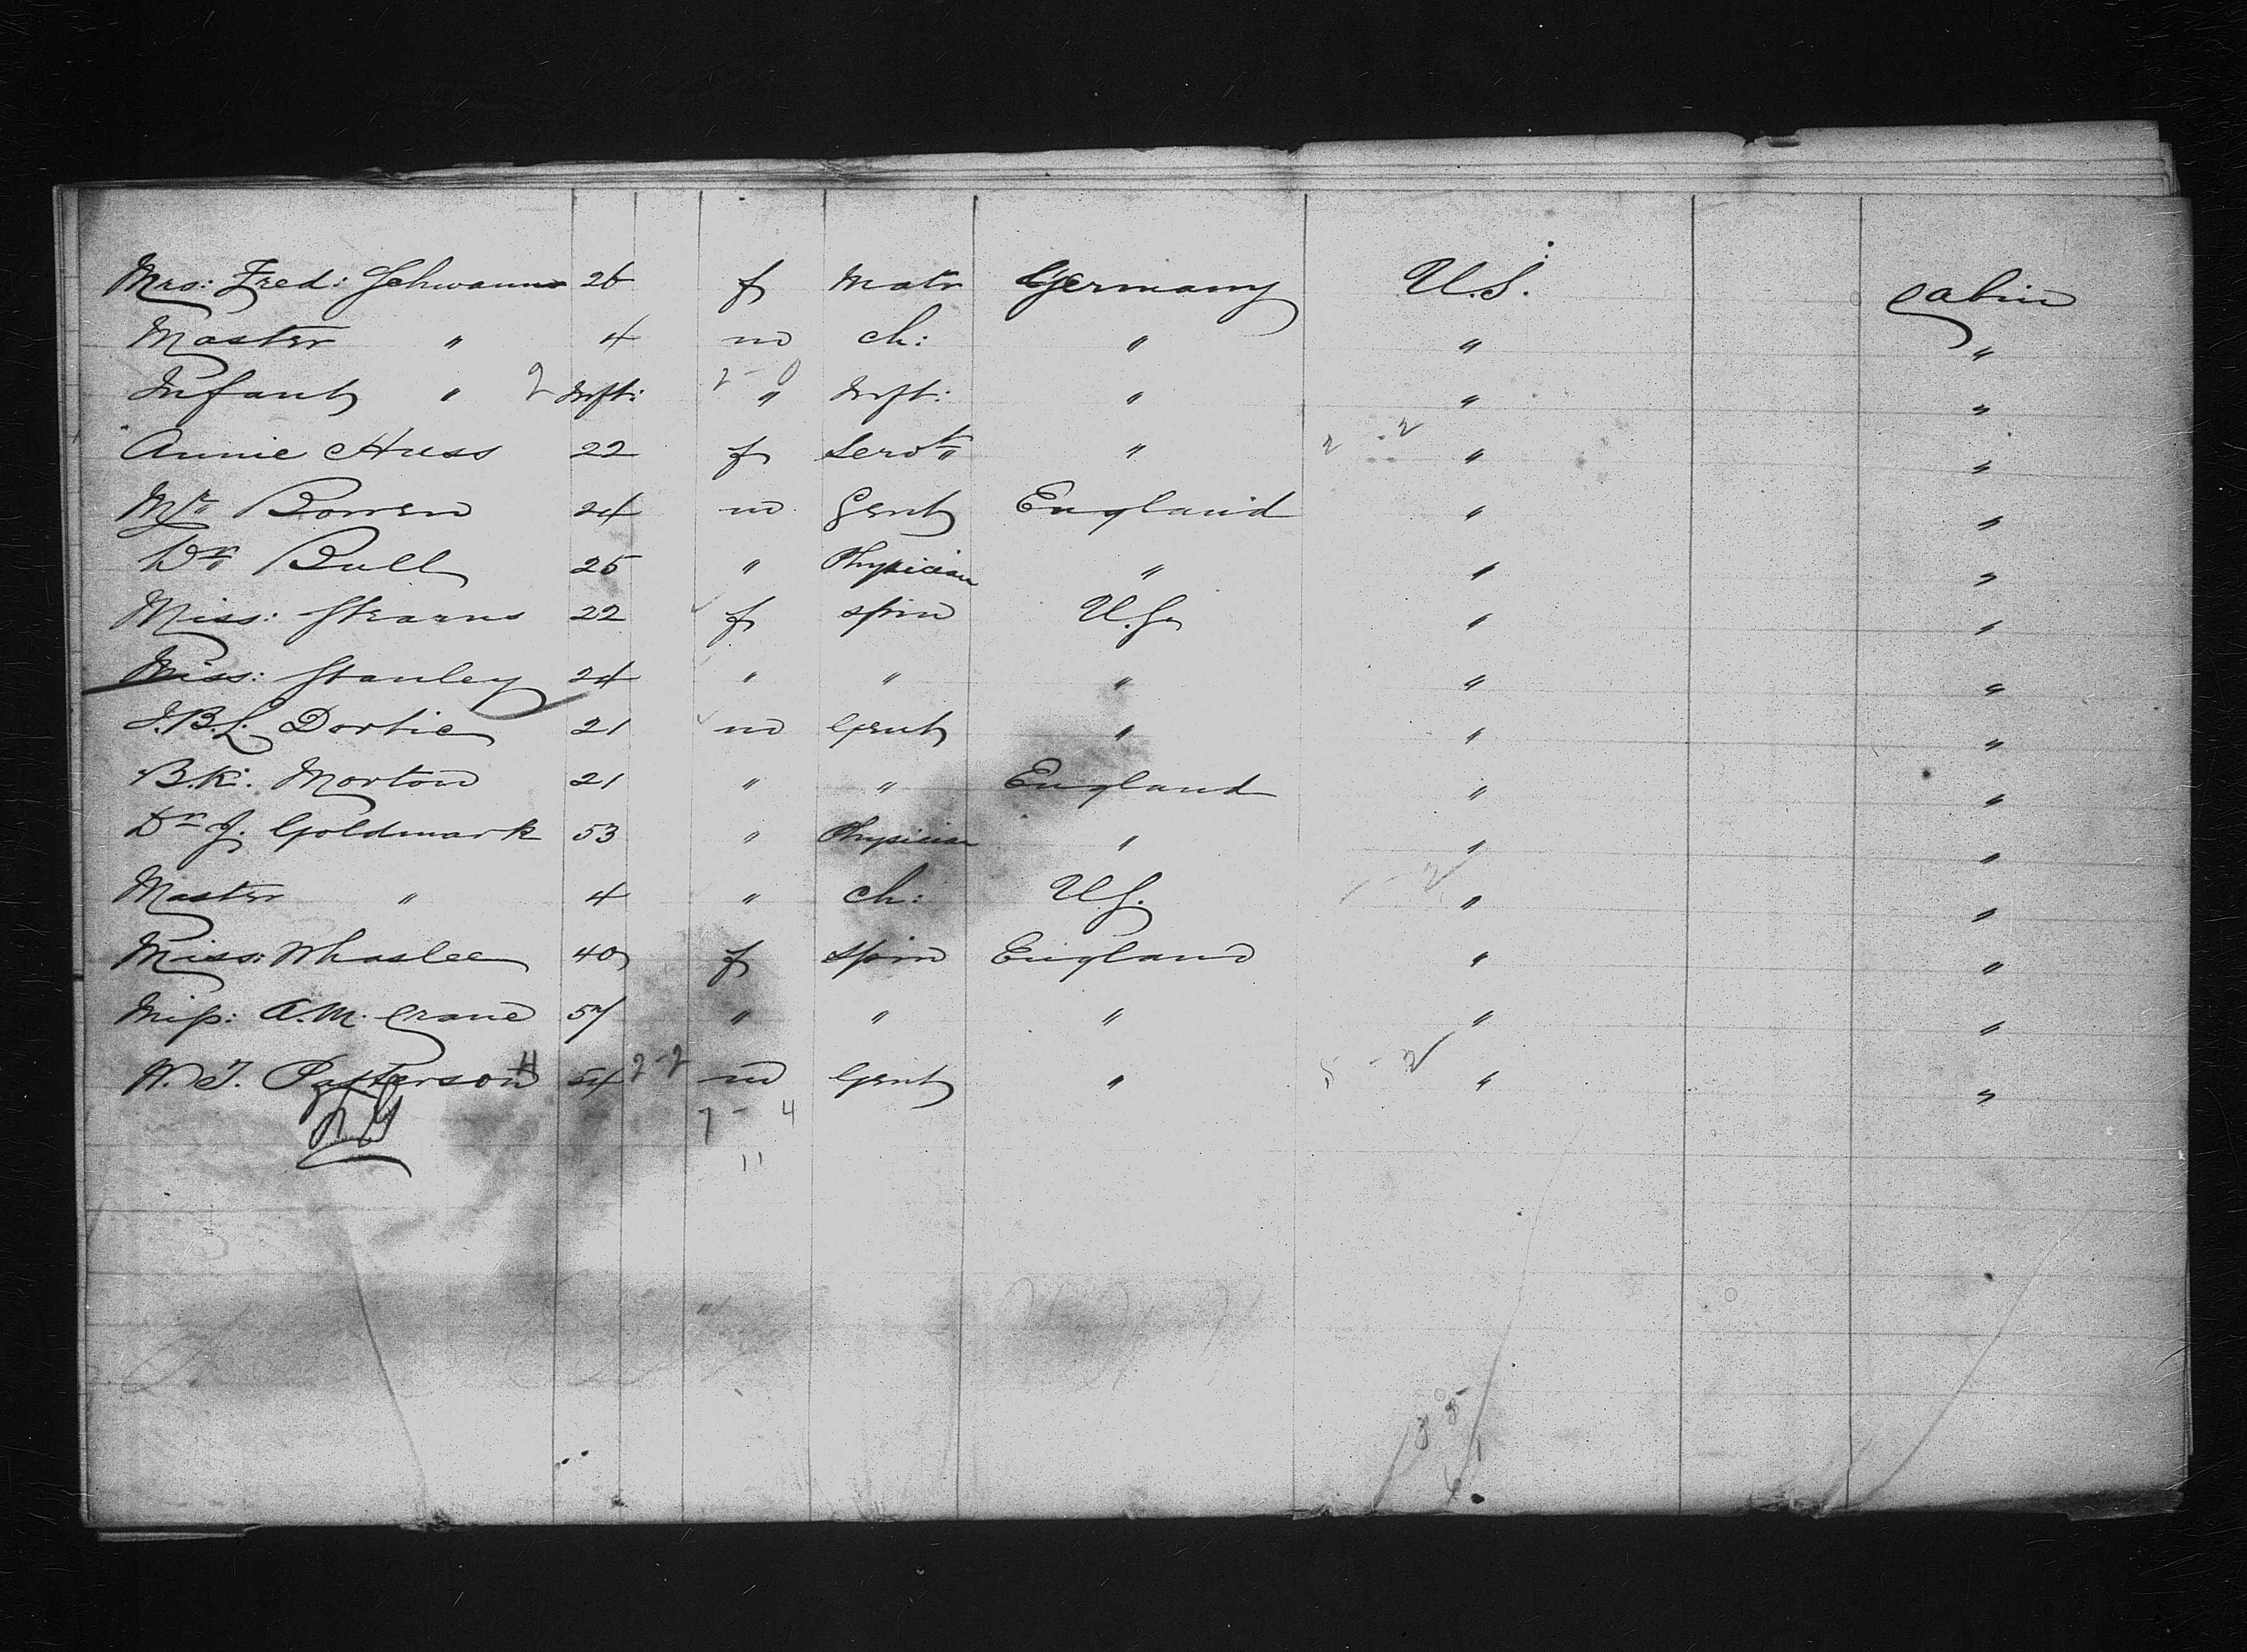 Mrs: Fred: Schwann 26 f Matr Germany U.S. Cabin
Master " 4 m ch: " " "
Infant " 2 Inft: " Inft: " " "
Annie Huss 22 f Servt " " "
Mr Bowen 24 m Gent England " "
Dr Bull 25 " Physician " " "
Miss: Stearns 22 f spin U.S. " "
Miss: Stanley 24 " " " " "
J.B.L. Dortic 21 m Gent " " "
B.K. Morton 21 " " England " "
Dr J. Goldmark 53 " Physician " " "
Master " 4 " ch: U.S. " "
Miss: Whaslee 40 f Spin England " "
Miss: A.M. Crane 57 " " " " "
W. T. Patterson 54 2-2 m Gent " " "
7 - 4
11